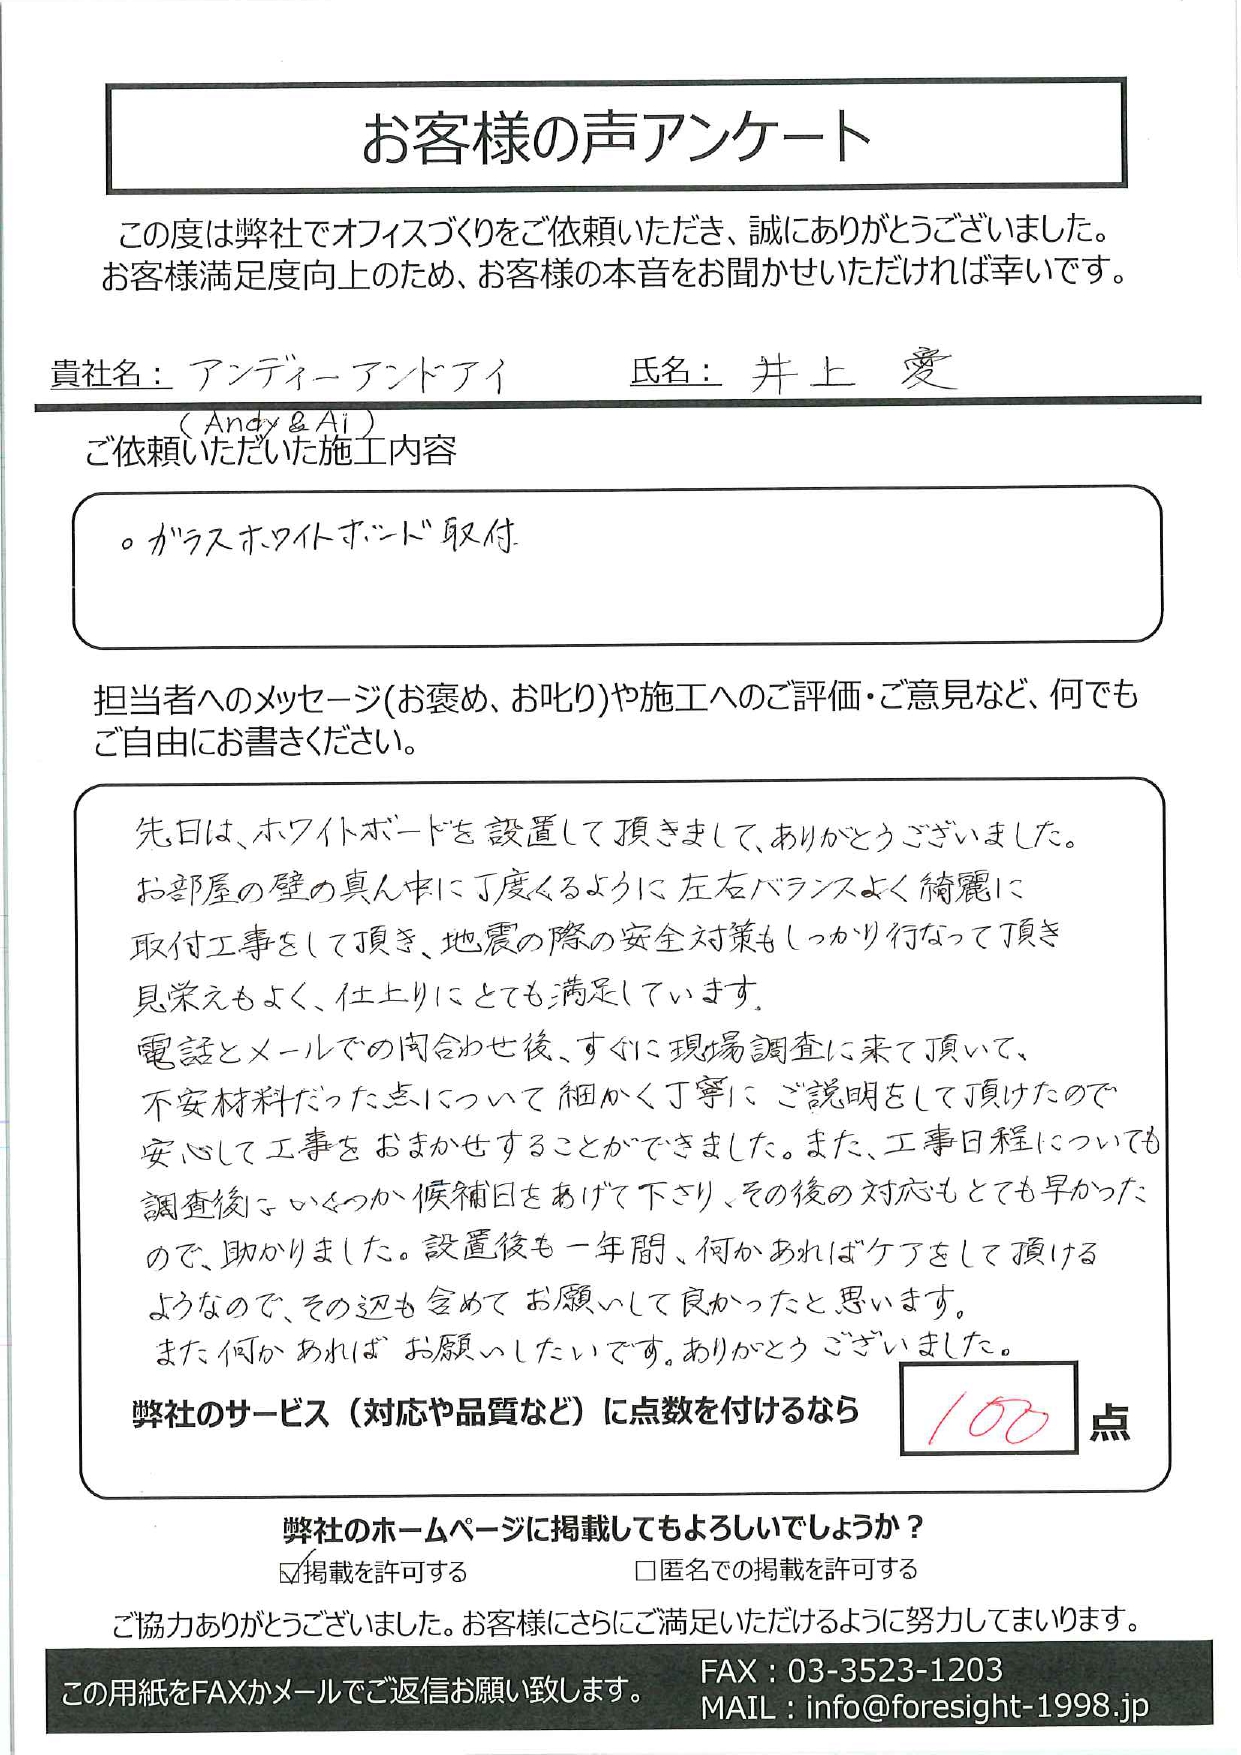 お客様の声アンケート
この度は弊社でオフィスづくりをご依頼いただき、誠にありがとうございました。
お客様満足度向上のため、お客様の本音をお聞かせいただければ幸いです。
貴社名： アンディーアンドアイ 氏名： 井上 愛
(Andy & Ai)
ご依頼いただいた施工内容
。ガラスホワイトボード取付
担当者へのメッセージ(お褒め、お叱り)や施工へのご評価・ご意見など、何でも
ご自由にお書きください。
先日は、ホワイトボードを設置して頂きまして、ありがとうございました。
お部屋の壁の真ん中に丁度くるように左右バランスよく綺麗に
取付工事をして頂き、地震の際の安全対策もしっかり行なって頂き
見栄えもよく、仕上りにとても満足しています。
電話とメールでの問合わせ後、すぐに現場調査に来て頂いて、
不安材料だった点について細かく丁寧にご説明をして頂けたので
安心して工事をおまかせすることができました。また、工事日程についても
調査後にいくつか候補日をあげて下さり、その後の対応もとても早かった
ので、助かりました。設置後も一年間、何かあればケアをして頂ける
ようなので、その辺も含めてお願いして良かったと思います。
また何かあればお願いしたいです。ありがとうございました。
弊社のサービス（対応や品質など）に点数を付けるなら 100 点
弊社のホームページに掲載してもよろしいでしょうか？
☑掲載を許可する □匿名での掲載を許可する
ご協力ありがとうございました。お客様にさらにご満足いただけるように努力してまいります。
この用紙をFAXかメールでご返信お願い致します。
FAX：03-3523-1203
MAIL：info@foresight-1998.jp